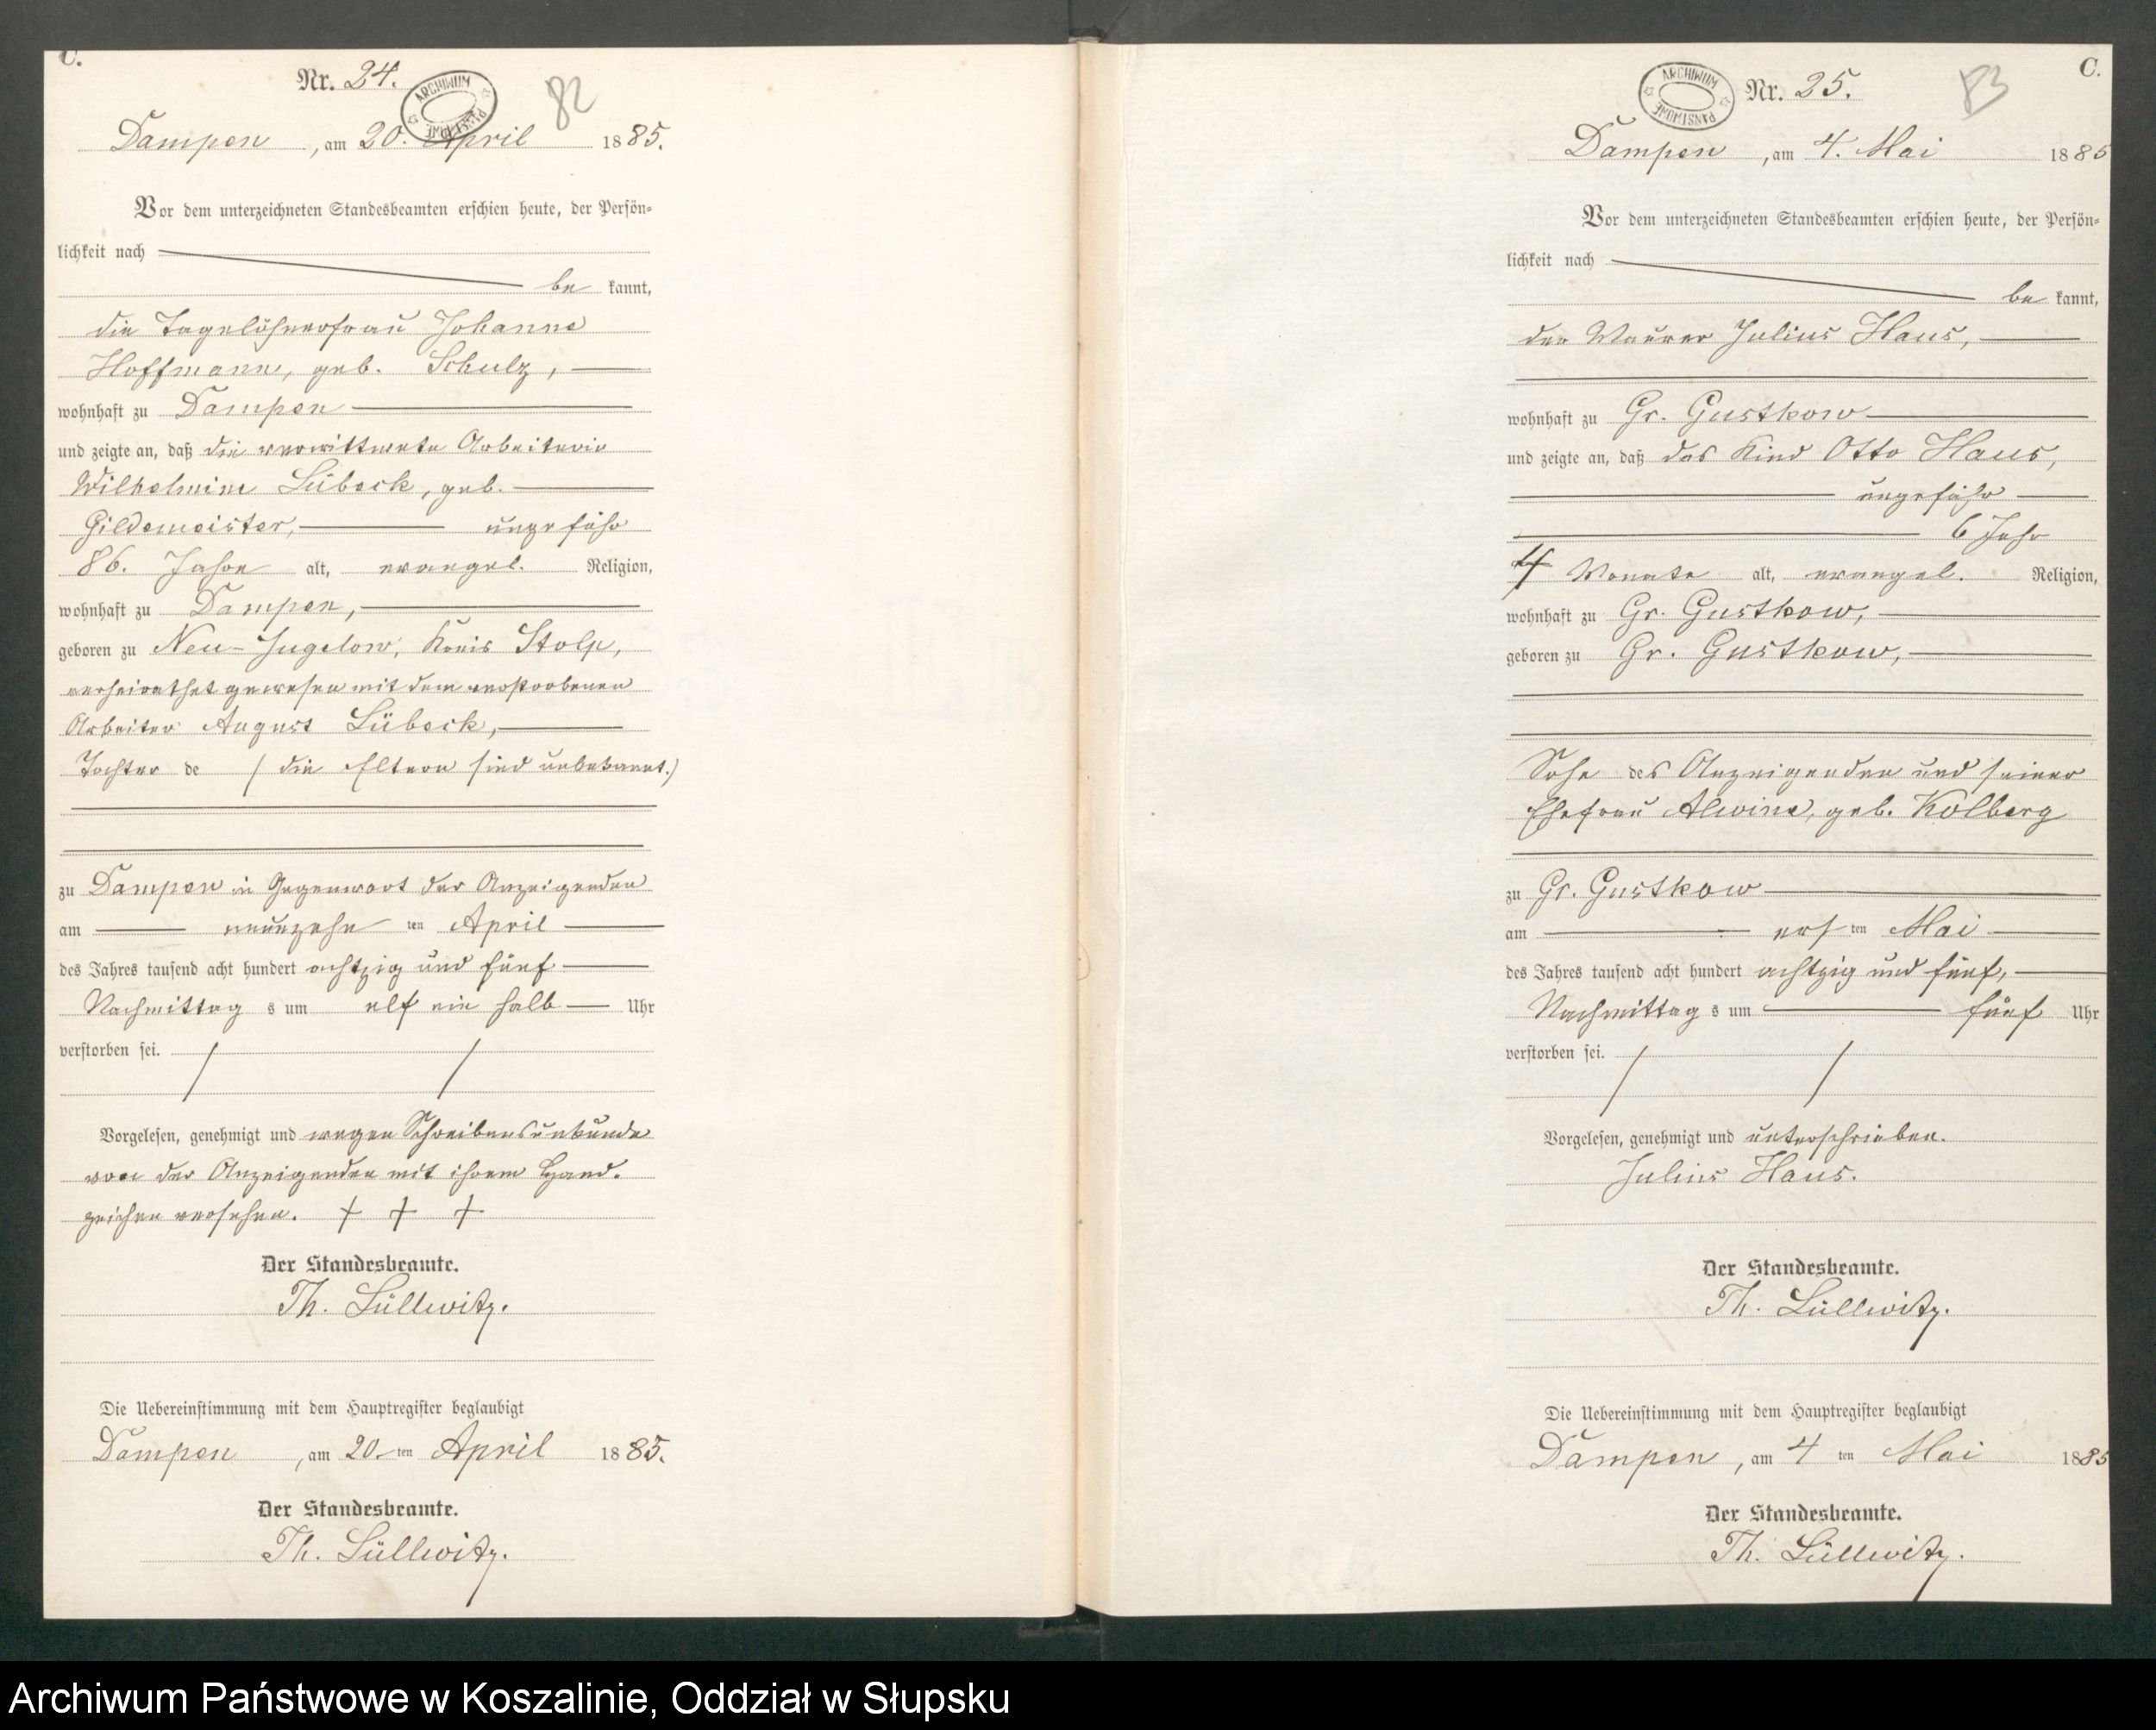 C.
Nr. 24.
ARCHIWUM PAŃSTWOWE
82
Dampen, am 20. April 1885.
Vor dem unterzeichneten Standesbeamten erschien heute, der Persön-
lichkeit nach
be kannt,
die Tagelöhnerfrau Johanne
Hoffmann, geb. Schulz,
wohnhaft zu Dampen
und zeigte an, daß die verwittwete Arbeiterin
Wilhelmine Lübeck, geb.
Gildemeister, ungefähr
86. Jahre alt, evangel. Religion,
wohnhaft zu Dampen,
geboren zu Neu-Jugelow, Kreis Stolp,
verheirathet gewesen mit dem verstorbenen
Arbeiter August Lübeck,
Tochter de (die Eltern sind unbekannt.)
zu Dampen in Gegenwart der Anzeigenden
am neunzehn ten April
des Jahres tausend acht hundert achtzig und fünf
Nachmittag s um elf ein halb Uhr
verstorben sei.
Vorgelesen, genehmigt und wegen Schreibensunkunde
von der Anzeigenden mit ihrem Hand-
zeichen versehen. + + +
Der Standesbeamte.
Th. Lüllwitz.
Die Uebereinstimmung mit dem Hauptregister beglaubigt
Dampen, am 20. ten April 1885.
Der Standesbeamte.
Th. Lüllwitz.
C.
ARCHIWUM PAŃSTWOWE
Nr. 25.
83
Dampen, am 4. Mai 1885
Vor dem unterzeichneten Standesbeamten erschien heute, der Persön-
lichkeit nach
be kannt,
der Maurer Julius Haus,
wohnhaft zu Gr. Gustkow
und zeigte an, daß das Kind Otto Haus,
ungefähr
6 Jahr
4 Monate alt, evangel. Religion,
wohnhaft zu Gr. Gustkow,
geboren zu Gr. Gustkow,
Sohn des Anzeigenden und seiner
Ehefrau Alwine, geb. Kolberg
zu Gr. Gustkow
am ers ten Mai
des Jahres tausend acht hundert achtzig und fünf,
Nachmittag s um fünf Uhr
verstorben sei.
Vorgelesen, genehmigt und unterschrieben.
Julius Haus.
Der Standesbeamte.
Th. Lüllwitz.
Die Uebereinstimmung mit dem Hauptregister beglaubigt
Dampen, am 4 ten Mai 1885
Der Standesbeamte.
Th. Lüllwitz.
Archiwum Państwowe w Koszalinie, Oddział w Słupsku